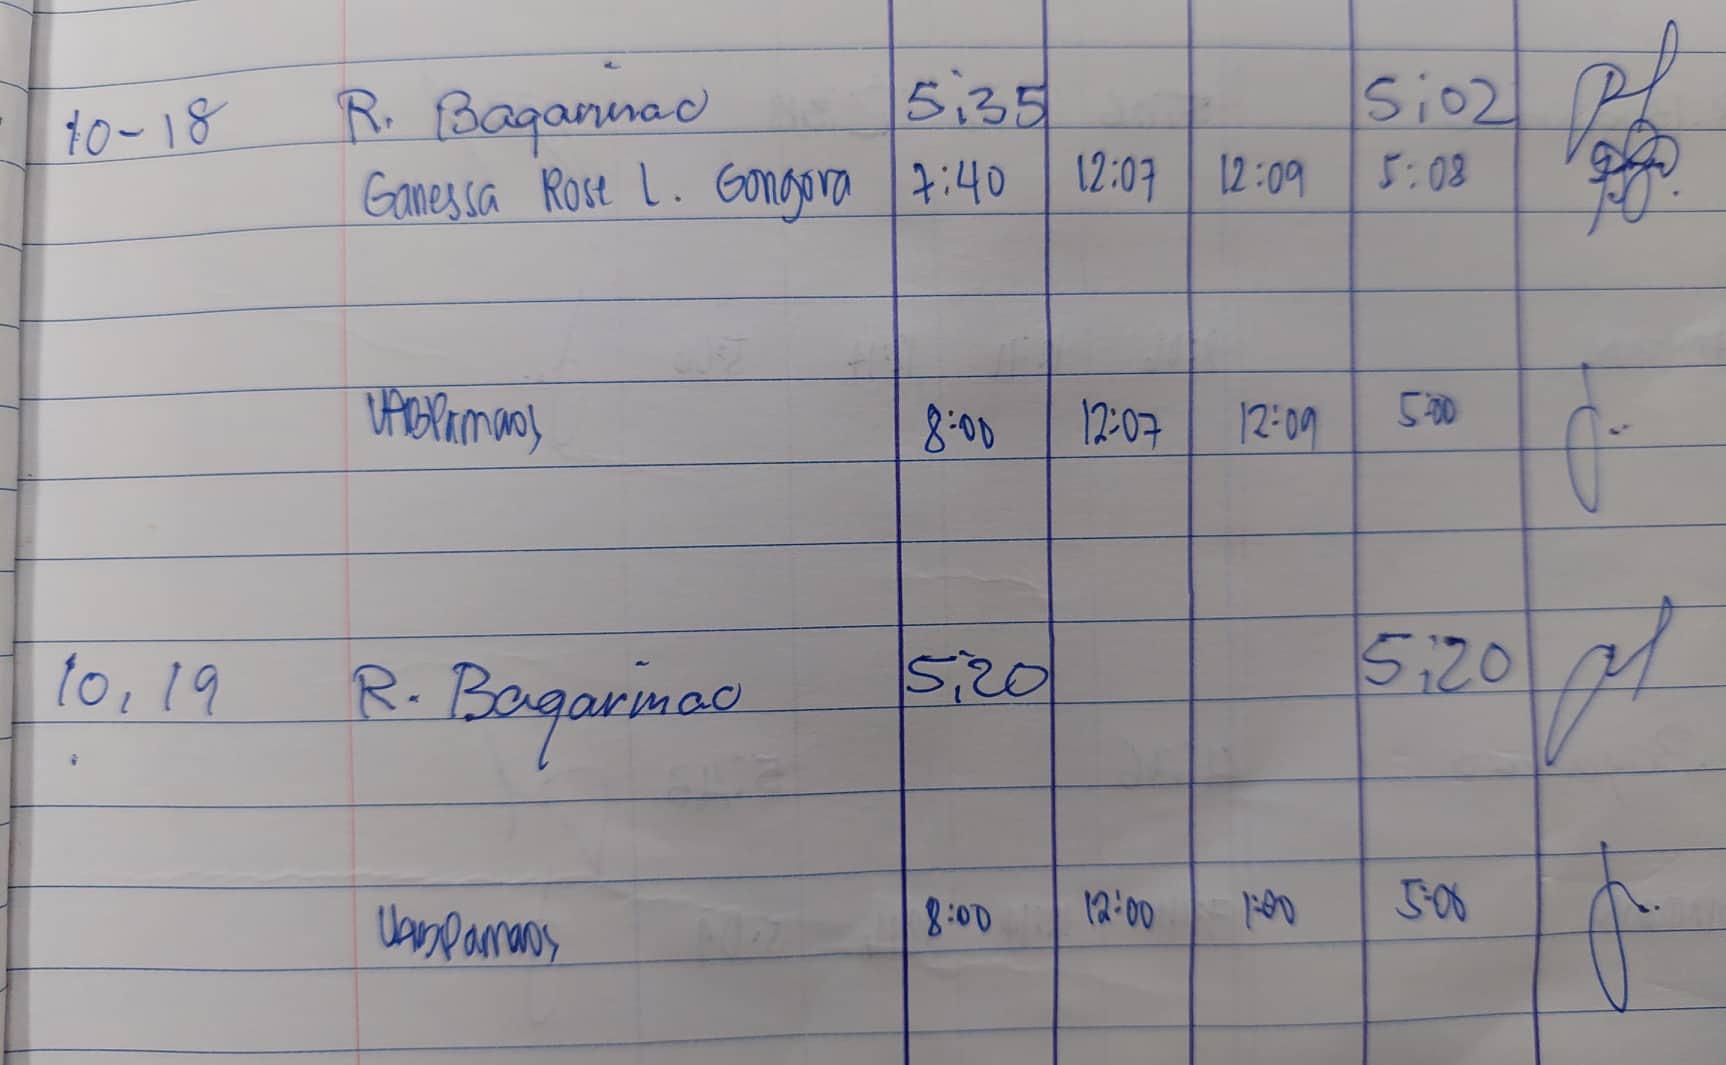 10-18 R. Bagarinao 5:35 5:02
Ganessa Rose L. Gongora 7:40 12:07 12:09 5:08
8:00 12:07 12:09 5:00
10, 19 R. Bagarinao 5:20 5:20
8:00 12:00 1:00 5:06